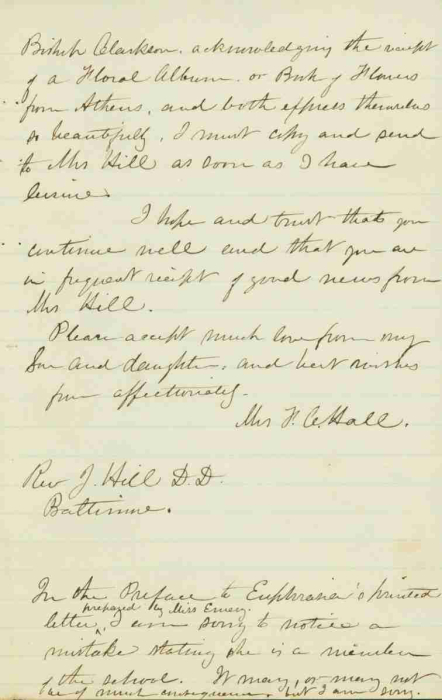 Bishop Clarkson. acknowledging the receipt
of a Floral Album. or Book of Flowers
from Athens, and both express themselves
so beautifully, I must copy and send
to Mrs Hill as soon as I have
leisure.
I hope and trust that you
continue well and that you are
in frequent receipt of good news from
Mrs Hill.
Please accept much love from my
Son and daughter, and best wishes
from affectionately.
Mrs F. C. Hall.
Rev J. Hill D.D.
Baltimore.
In the Preface to Euphrasia's printed
prepared by Miss Emery.
letter, I am sorry to notice a
mistake stating she is a member
of the school. It may, or may not
be of much consequence, but I am sorry.